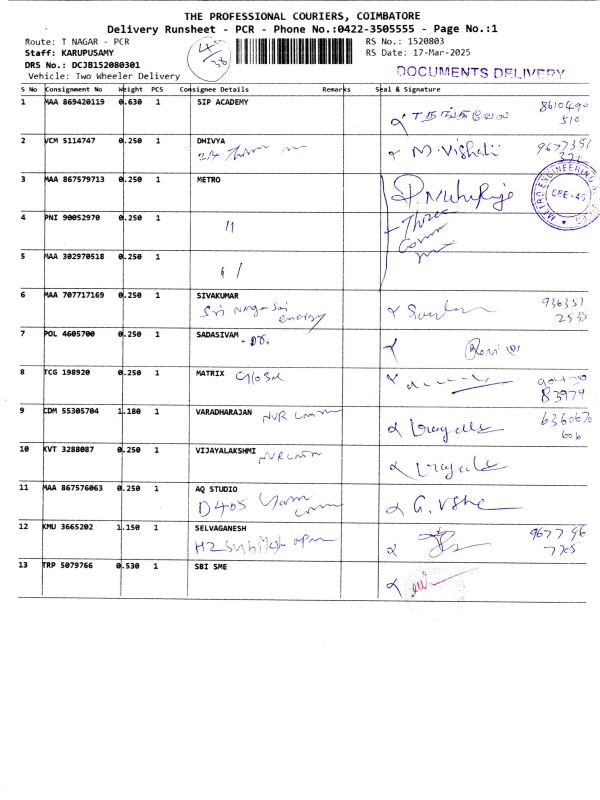 THE PROFESSIONAL COURIERS, COIMBATORE
Delivery Runsheet - PCR - Phone No.:0422-3505555 - Page No.:1
Route: T NAGAR - PCR
Staff: KARUPUSAMY
DRS No.: DCJB152080301
Vehicle: Two Wheeler Delivery
RS No.: 1520803
RS Date: 17-Mar-2025
DOCUMENTS DELIVERY
S No Consignment No Weight PCS Consignee Details Remarks Seal & Signature
1 MAA 869420119 0.630 1 SIP ACADEMY
தங்கவேல் 8610490
510
2 VCM 5114747 0.250 1 DHIVYA
M. Vishali 9677351
3 MAA 867579713 0.250 1 METRO
METRO ENGINEERING
CBE-45
4 PNI 90052970 0.250 1
11
Three
5 MAA 302970518 0.250 1
6 MAA 707717169 0.250 1 SIVAKUMAR
Sri Naga Sai
energy
936351
2533
7 POL 4605700 0.250 1 SADASIVAM
- DR.
8 TCG 198920 0.250 1 MATRIX Global
83979
9 CDM 55305704 1.180 1 VARADHARAJAN NVR
636067
606
10 KVT 3288087 0.250 1 VIJAYALAKSHMI
11 MAA 867576063 0.250 1 AQ STUDIO
D405
12 KMU 3665202 1.150 1 SELVAGANESH
H2
967796
725
13 TRP 5079766 0.530 1 SBI SME